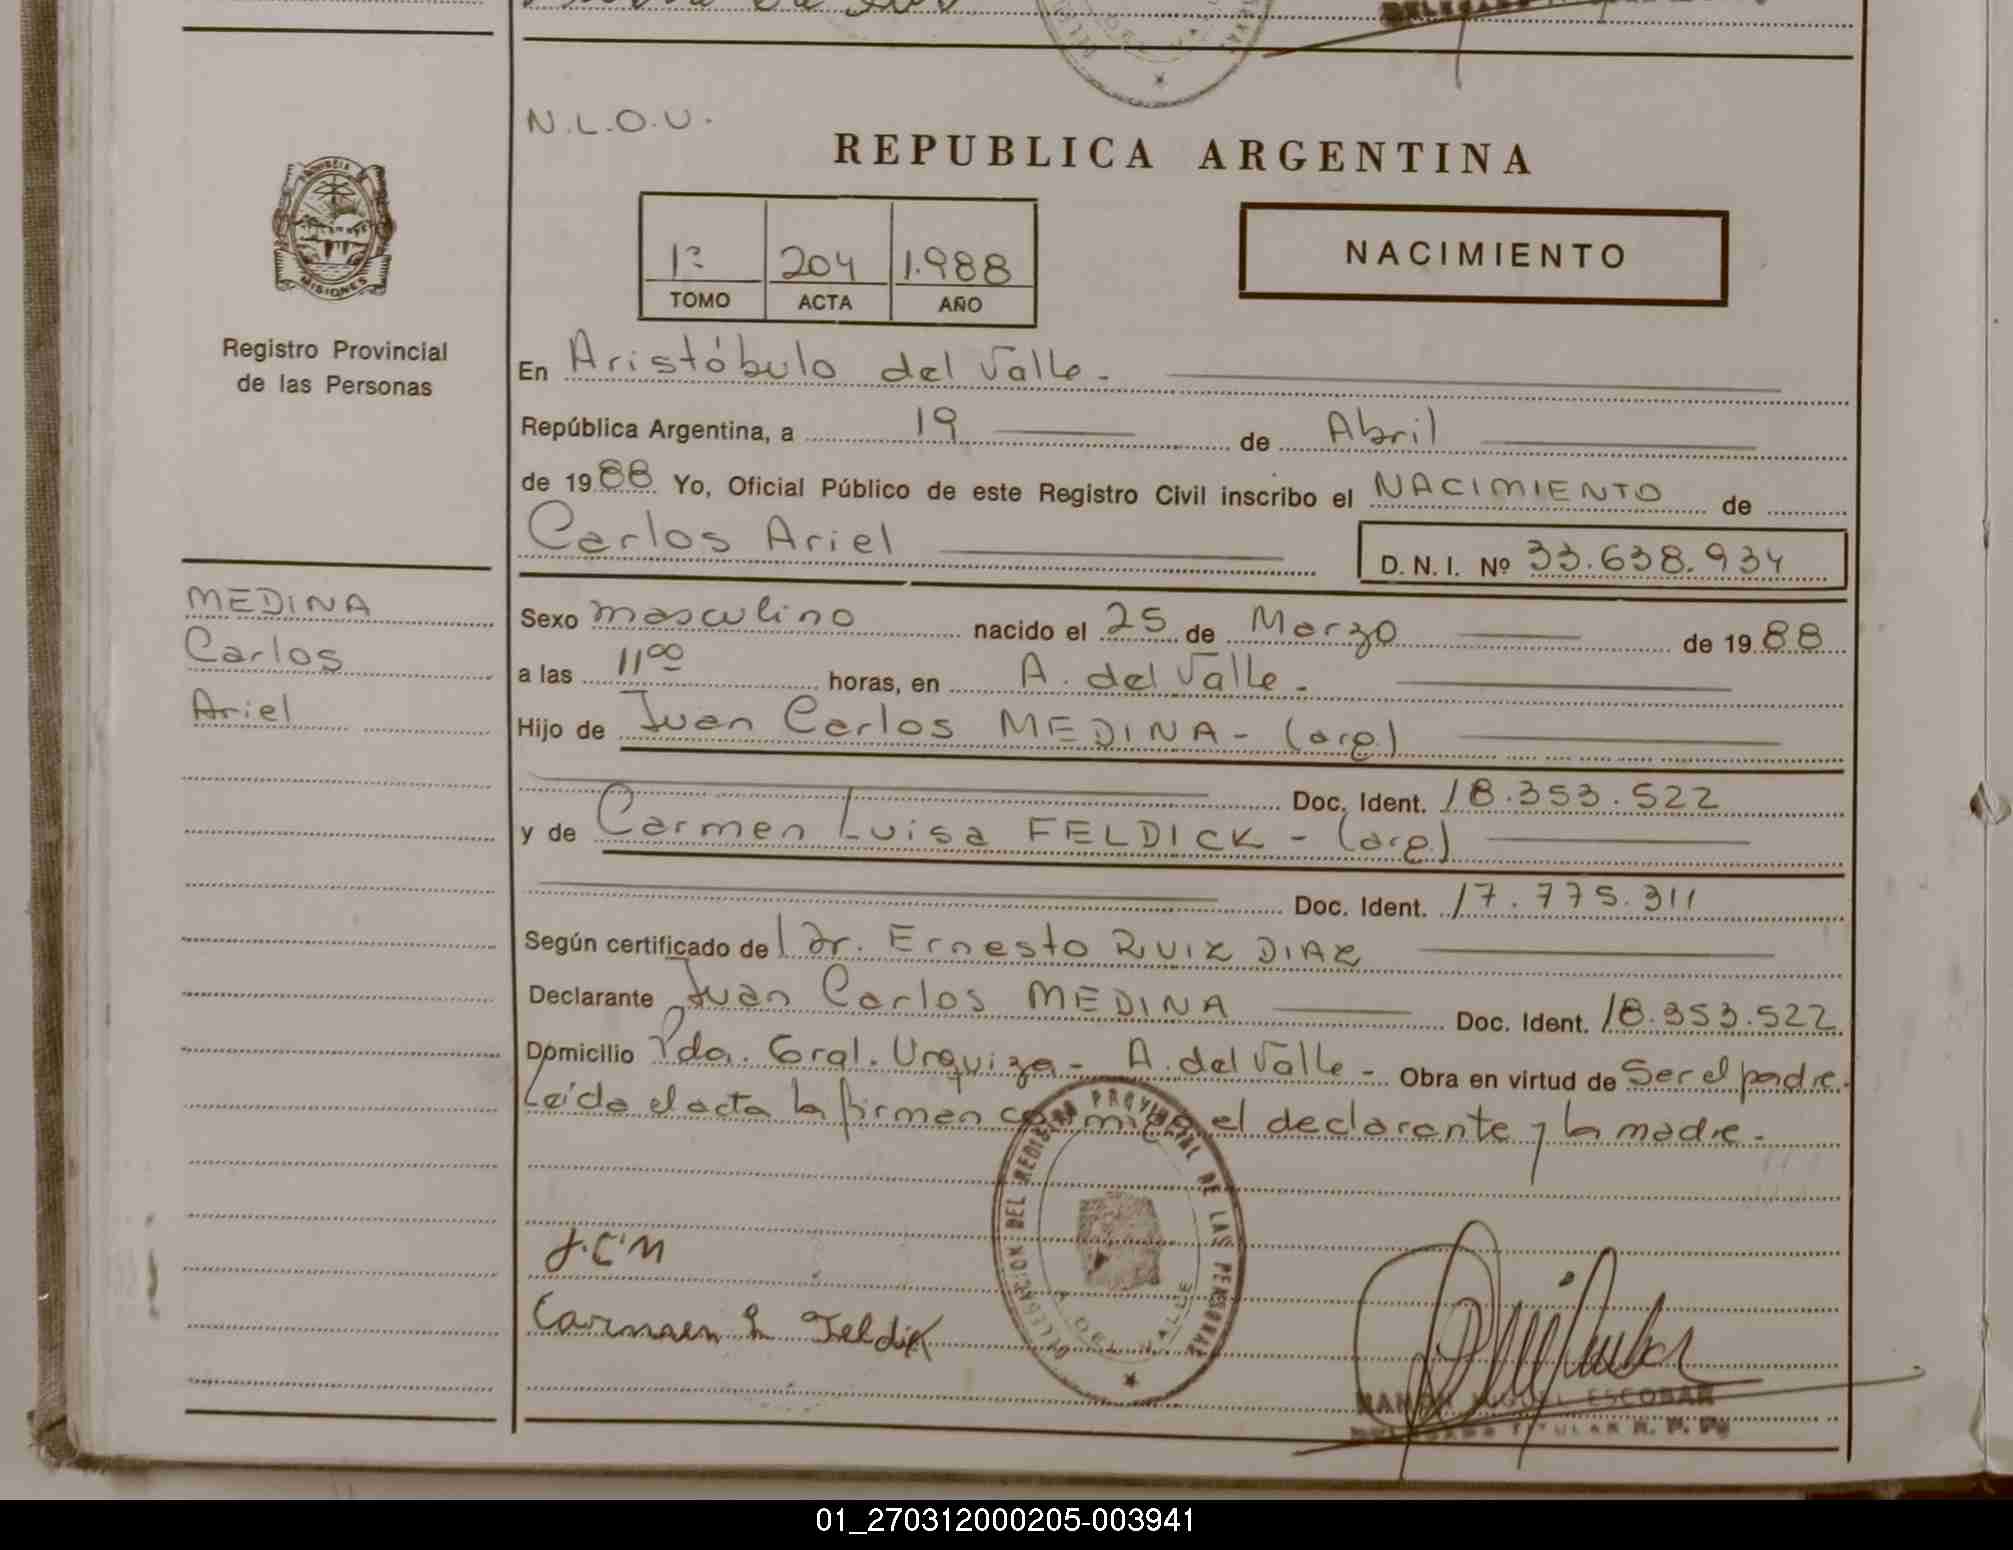 N.L.O.U.
REPUBLICA ARGENTINA
PROVINCIA
MISIONES
Registro Provincial
de las Personas
1º 204 1.988
TOMO ACTA AÑO
NACIMIENTO
En Aristóbulo del Valle.-
República Argentina, a 19 de Abril
de 1988 Yo, Oficial Público de este Registro Civil inscribo el NACIMIENTO de
Carlos Ariel D. N. I. Nº 33.638.934
MEDINA
Carlos
Ariel
Sexo masculino nacido el 25 de Marzo de 1988
a las 11 00 horas, en A. del Valle.-
Hijo de Juan Carlos MEDINA - (arg.)
Doc. Ident. 18.353.522
y de Carmen Luisa FELDICK - (arg.)
Doc. Ident. 17.775.311
Según certificado del Dr. Ernesto RUIZ DIAZ
Declarante Juan Carlos MEDINA Doc. Ident. 18.353.522
Domicilio Pda. Gral. Urquiza - A. del Valle - Obra en virtud de Ser el padre.
Leída el acta la firman conmigo el declarante y la madre.-
DELEGACION DEL REGISTRO PROVINCIAL DE LAS PERSONAS
A. DEL VALLE
J.C.M
Carmen L Feldik
RAMON MIGUEL ESCOBAR
DELEGADO TITULAR R. P. P.
01_270312000205-003941